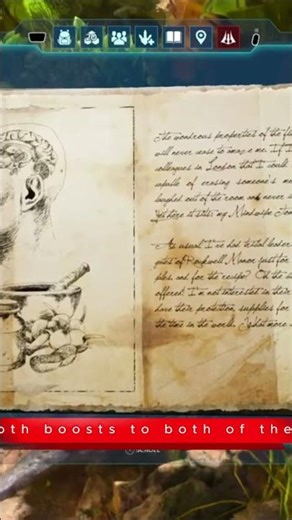 The wondrous properties of the
will never cease to amaze me. If
colleagues in London that I could
capable of erasing someone's
laughed out of the room and never
Yet here it sits, my Mindwipe Ton
As usual I've had
gates of Rockwell Manor just for
and for the recipe? Oh the
offered. I'm not interested in their
have their protection supplies for
the time in the world.
oth boosts to both of the
SCROLL